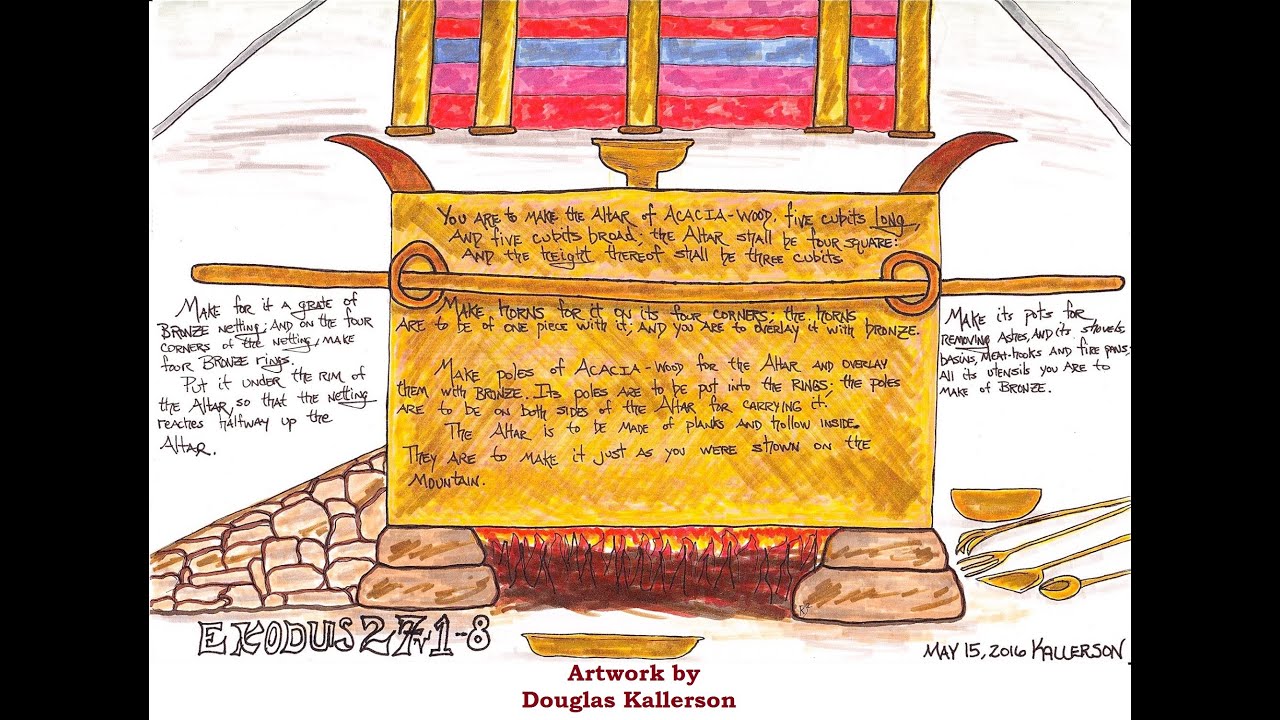 You are to make the Altar of Acacia-wood, five cubits long,
and five cubits broad; the Altar shall be four square:
and the height thereof shall be three cubits
Make horns for it on its four corners; the horns
are to be of one piece with it; and you are to overlay it with bronze.
Make poles of Acacia-wood for the Altar and overlay
them with bronze. Its poles are to be put into the rings; the poles
are to be on both sides of the Altar for carrying it.
The Altar is to be made of planks and hollow inside.
They are to make it just as you were shown on the
Mountain.
Make for it a grate of
bronze netting; and on the four
corners of the netting, make
four bronze rings.
Put it under the rim of
the Altar, so that the netting
reaches halfway up the
Altar.
Make its pots for
removing ashes, and its shovels
basins, meat-hooks and fire pans;
All its utensils you are to
make of bronze.
EXODUS 27:1-8
MAY 15, 2016 KALLERSON
Artwork by
Douglas Kallerson